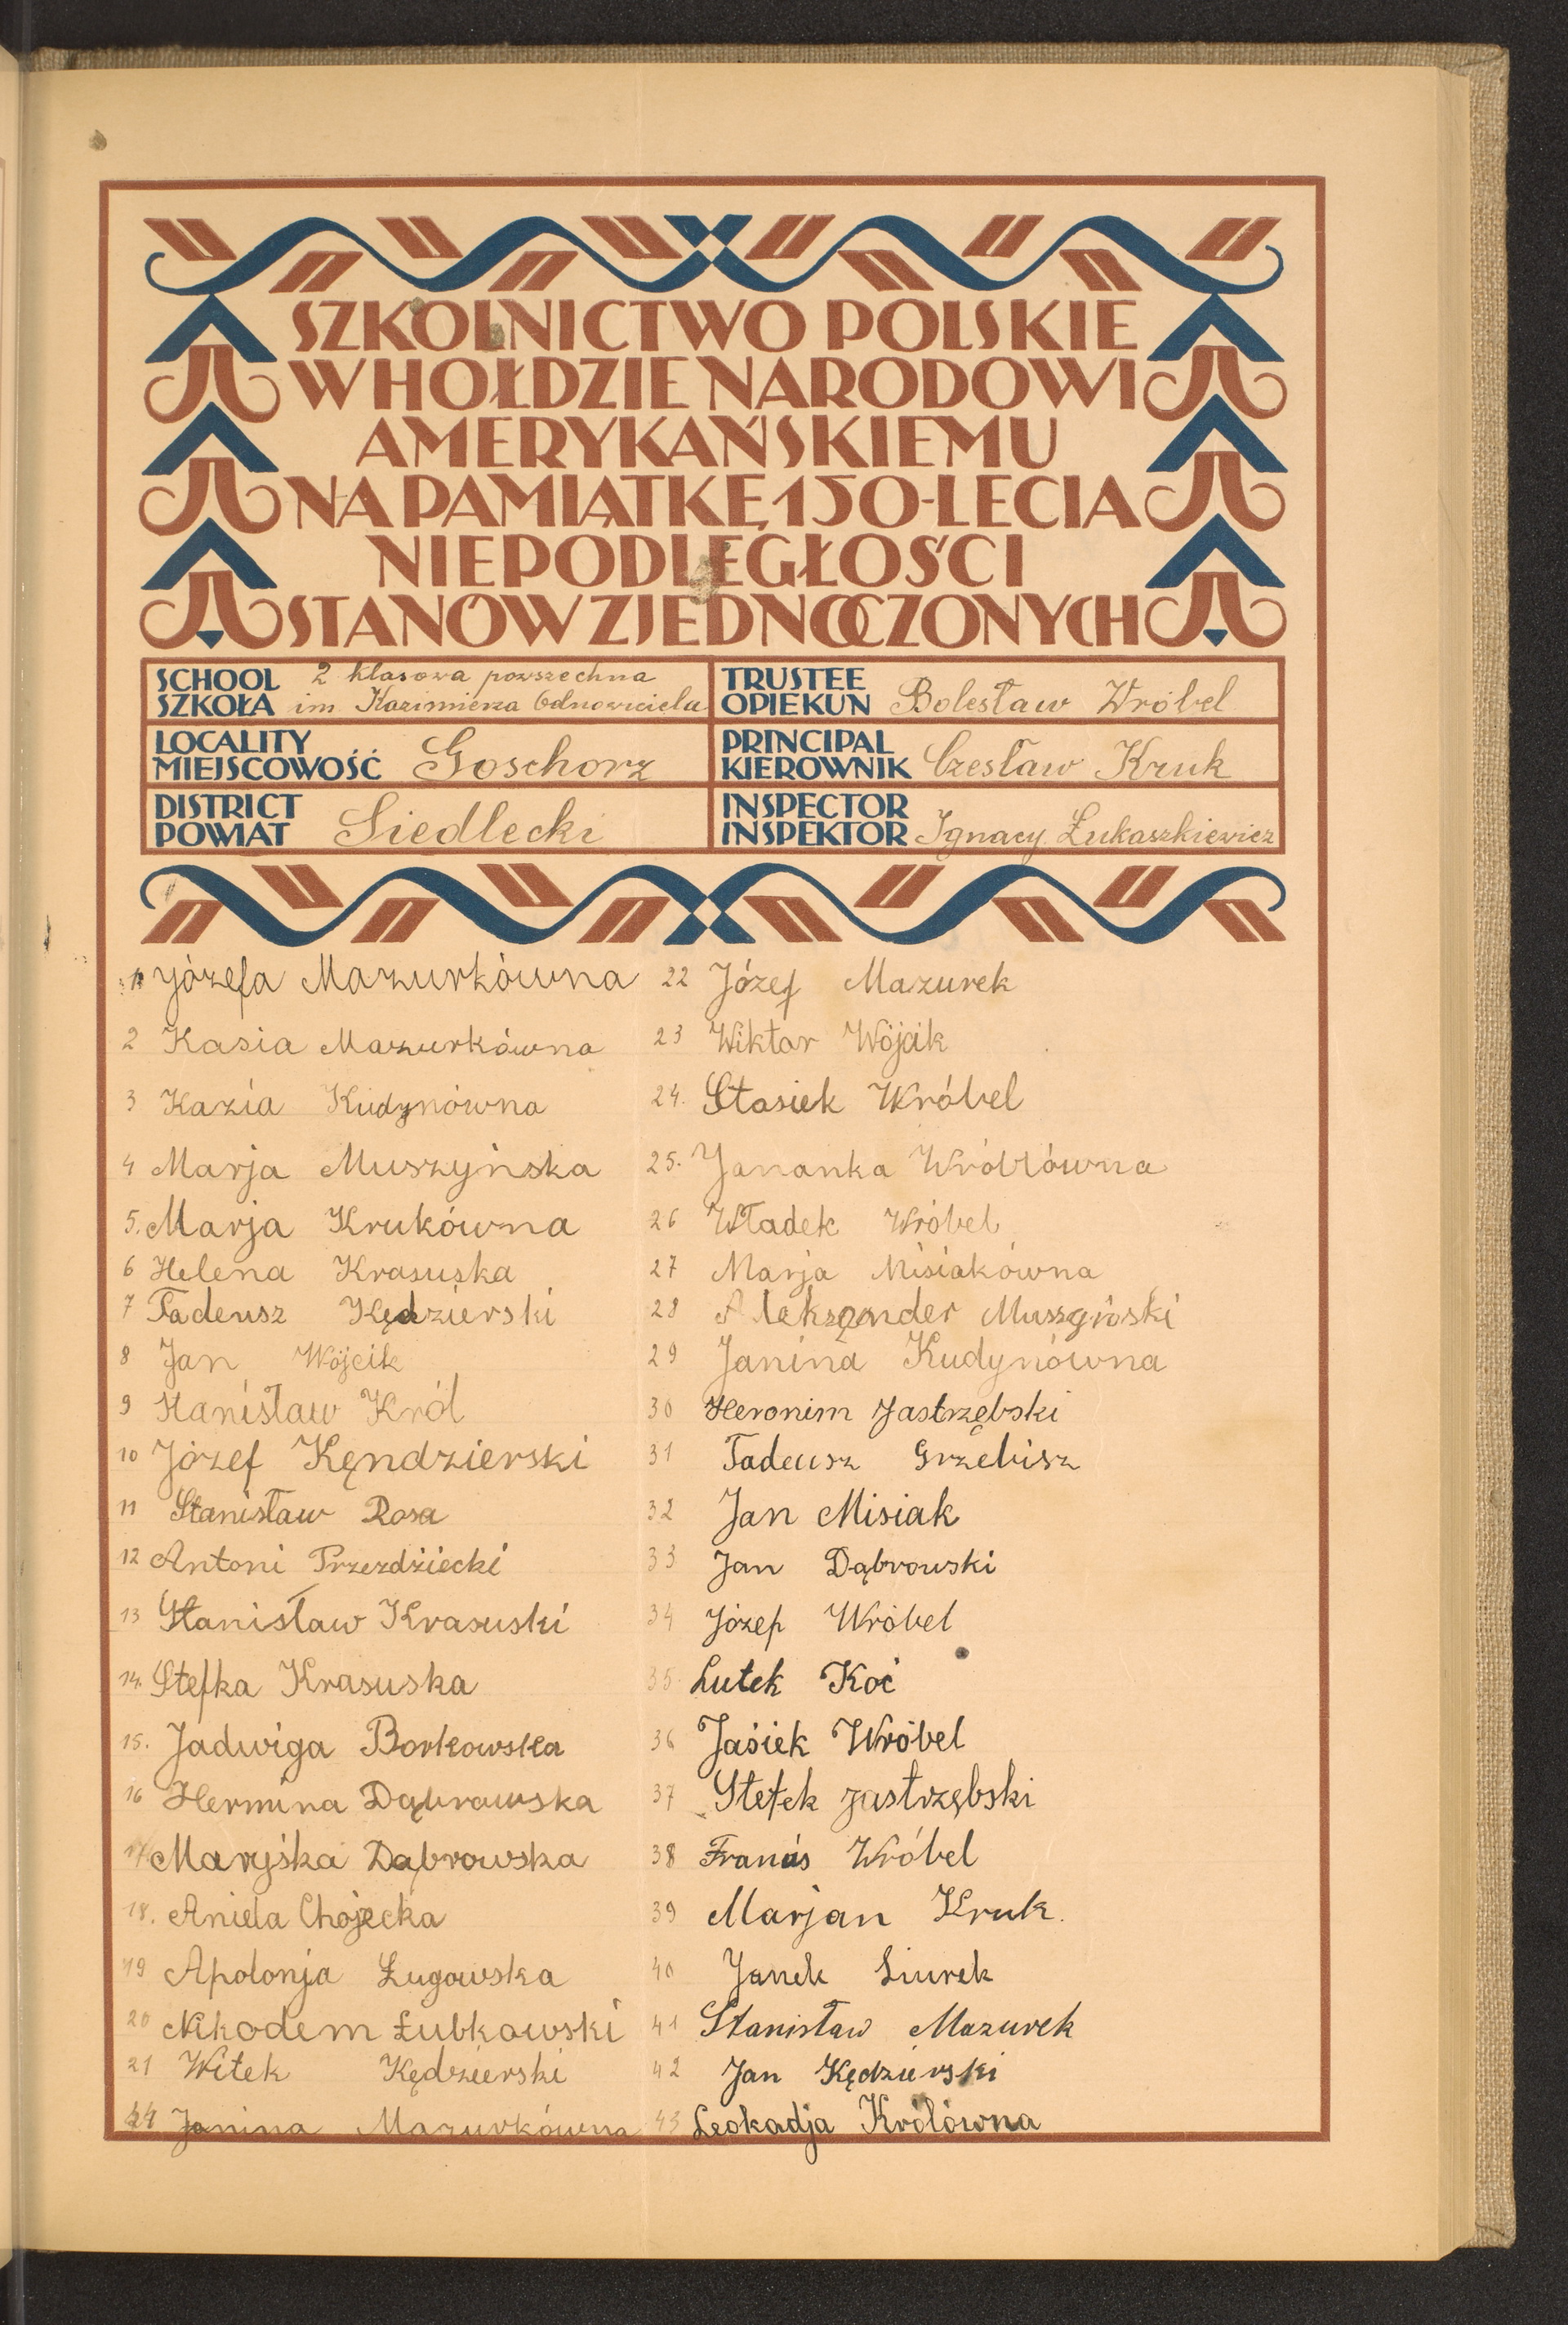 SZKOLNICTWO POLSKIE
W HOŁDZIE NARODOWI
AMERYKAŃSKIEMU
NA PAMIĄTKĘ 150-LECIA
NIEPODLEGŁOŚCI
STANÓW ZJEDNOCZONYCH
SCHOOL
SZKOŁA
2 klasowa powszechna
im Kazimierza Odnowiciela
TRUSTEE
OPIEKUN
Bolesław Wróbel
LOCALITY
MIEJSCOWOŚĆ
Goschorz
PRINCIPAL
KIEROWNIK
Czesław Kruk
DISTRICT
POWIAT
Siedlecki
INSPECTOR
INSPEKTOR
Ignacy Łukaszkiewicz
1 Józefa Mazurkówna
2 Kasia Mazurkówna
3 Kazia Kudynówna
4 Marja Muszyńska
5. Marja Krukówna
6 Helena Krasuska
7 Tadeusz Kędzierski
8 Jan Wójcik
9 Stanisław Król
10 Józef Kęndzierski
11 Stanisław Rosa
12 Antoni Przezdziecki
13 Stanisław Krasuski
14. Stefka Krasuska
15. Jadwiga Borkowska
16 Hermina Dąbrowska
17 Maryśka Dąbrowska
18. Aniela Chojecka
19 Apolonja Ługowska
20 Nikodem Łubkowski
21 Witek Kędzierski
44 Janina Mazurkówna
22 Józef Mazurek
23 Wiktor Wójcik
24. Stasiek Wróbel
25. Jananka Wróblówna
26 Władek Wróbel
27 Marja Misiakówna
28 Aleksander
29 Janina Kudynówna
30 Heronim Jastrzębski
31 Tadeusz Grzebisz
32 Jan Misiak
33 Jan Dąbrowski
34 Józef Wróbel
35 Lutek Koć
36 Jasiek Wróbel
37 Stefek Jastrzębski
38 Franuś Wróbel
39 Marjan Kruk.
40 Janek
41 Stanisław Mazurek
42 Jan Kędzierski
43 Leokadja Królówna